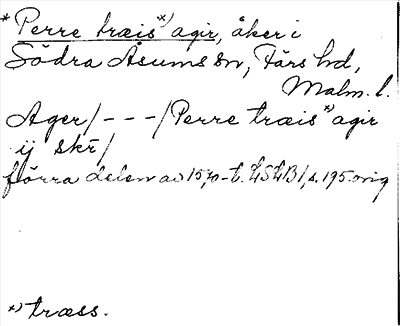 * Perre træis *) agir, åker i
Södra Åsums sn, Färs hd,
Malm. l.
Ager /---/ Perre træis *) agir
ij skr̄ /
förra delen av 15 -t. s. 195 orig
*) træss.